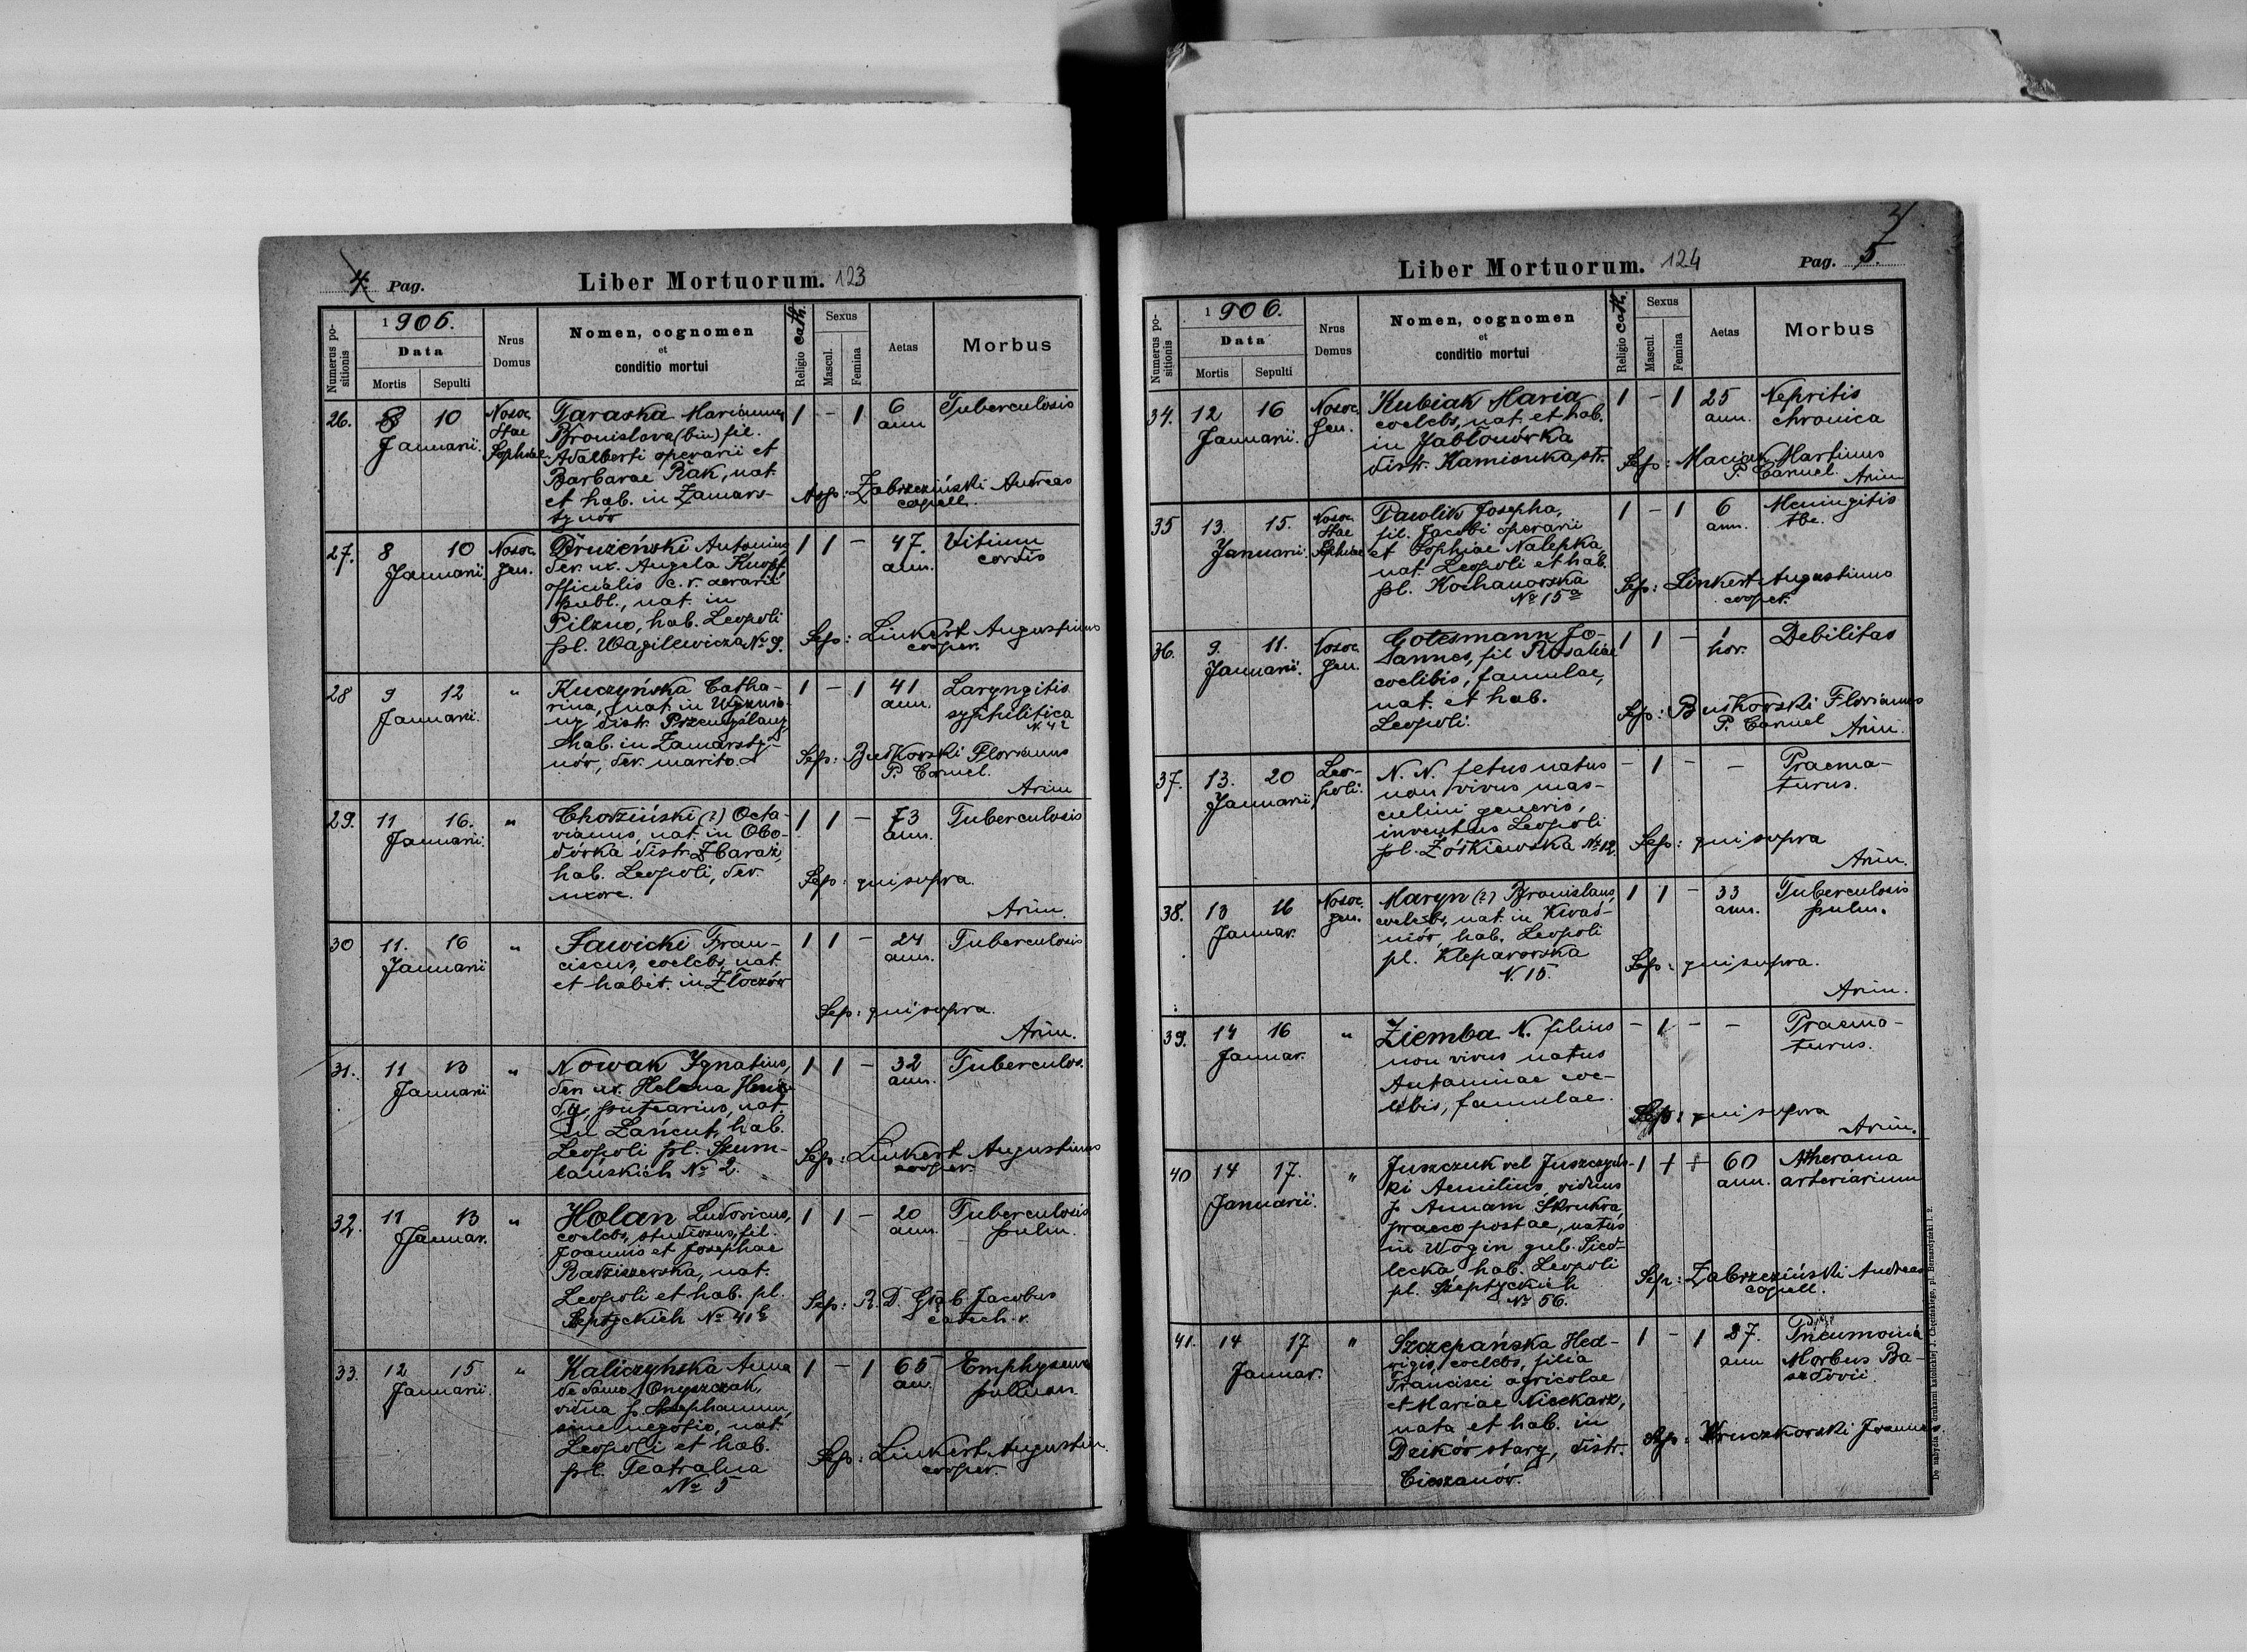 4. Pag.
Liber Mortuorum. 123
Numerus positionis
1906.
Data
Mortis Sepulti
Nrus Domus
Nomen, cognomen
et
conditio mortui
Religio cath.
Sexus
Mascul. Femina
Aetas
Morbus
26. 8 10 Januarii.
Nosoc. Stae Sophiae.
Taraska Marianna
Bronislava (bin) fil.
Adalberti operarii et
Barbarae Rak, nat.
et hab. in Zamars-
tynów
1 - 1 6 ann
Tuberculosis
Sep: Zabrzeziński Andreas
capell.
27. 8 10 Januarii.
Nosoc. gen.
Drużeński Antonius
der. ux. Angela Knopf
officialis c. r. aerarii
publ., nat. in
Pilzno, hab. Leopoli
pl. Wagilewicza No 9.
1 1 - 47. ann.
Vitium
cordis
Sep: Linkert Augustinus
cooper.
28 9 12 Januarii.
"
Kuczyńska Catha-
rina, nat. in
distr. Przemyślany
hab. in Zamarsty-
nów, der. marito.
1 - 1 41 ann.
Laryngitis
syphilitica
Sep: Butkorski Florianus
P. Carmel.
Arim
29. 11 16. Januarii.
"
Chordziński (?) Octa-
vianus, nat. in Obo-
dówka distr. Zbaraż,
hab. Leopoli, der.
uxore.
1 1 - 73 ann.
Tuberculosis
Sep: qui supra.
Arim.
30 11. 16 Januarii
"
Sawicki Fran-
ciscus, coelebs, nat.
et habit. in Złoczów
1 1 - 24 ann.
Tuberculosis
Sep: qui supra.
Arim.
31. 11 13 Januarii
"
Nowak Ignatius,
der. ux. Helena
nat.
in Łańcut, hab.
Leopoli pl. Szum-
lańskich No 2.
1 1 - 32 ann.
Tuberculos.
Sep: Linkert Augustinus
cooper.
32. 11 13 Januar.
"
Holan Ludovicus,
coelebs, studiosus, fil.
Joannis et Josephae
Radziszewska, nat.
Leopoli et hab. pl.
Szeptyckich No 41b
1 1 - 20 ann.
Tuberculosis
pulm.
Sep: R. D. Głąb Jacobus
catech.
33. 12 15 Januarii.
"
Kaliczyńska Anna
de domo Onyszczak,
vidua p. Josephanum,
sine negotio, nat.
Leopoli et hab.
pl. Teatralna
No 5
1 - 1 65 an.
Emphysema
pulmon.
Sep: Linkert Augustin.
cooper.
Liber Mortuorum. 124
Pag. 5.
Numerus positionis
1906.
Data
Mortis Sepulti
Nrus Domus
Nomen, cognomen
et
conditio mortui
Religio cath.
Sexus
Mascul. Femina
Aetas
Morbus
34. 12 16 Januarii.
Nosoc. gen.
Kubiak Maria
coelebs, nat. et hab.
in Jabłonówka
distr. Kamionka str.
1 - 1 25 ann.
Nepritis
chronica
Sep: Maciak Martinus
P. Carmel. Arim
35 13. 15. Januarii.
Nosoc. Stae Sophiae
Pawlik Josepha,
fil. Jacobi operarii
et Sophiae Nalepka,
nat. Leopoli et hab.
pl. Kochanowska
No 15a
1 - 1 6 ann.
Meningitis
tbc.
Sep: Linkert Augustinus
cooper.
36. 9. 11. Januarii.
Nosoc. gen.
Gotesmann Jo-
annes, fil. Rosaliae
coelibis, famulae,
nat. et hab.
Leopoli.
1 1 - 1 hor.
Debilitas
Sep: Butkorski Florianus
P. Carmel Arim.
37. 13. 20 Januarii,
Leo-
poli.
N. N. fetus natus
non vivus mas-
culini generis,
inventus Leopoli
pl. Żółkiewska No 12.
- 1 - -
Praema-
turus.
Sep: qui supra
Arim.
38. 13 16 Januar.
Nosoc. gen.
Maryn (?) Bronislaus,
coelebs, nat. in Kwaś-
niów, hab. Leopoli
pl. Kleparowska
N. 15.
1 1 - 33 ann.
Tuberculosis
pulm.
Sep: qui supra.
Arim.
39. 14 16 Januar.
"
Ziemba N. filius
non vivus natus
Antoninae coe-
libis, famulae.
- 1 - -
Praema-
turus.
Sep: qui supra
Arim.
40 14 17. Januarii.
"
Juszczuk vel Juszczyńs-
ki Aemilius, viduus
p. Annam Skrukra,
praeco postae, natus
in Wogin gub. Sied-
lecka hab. Leopoli
pl. Szeptyckich
No 56.
1 1 + 60 ann.
Atheroma
arteriarum
Sep: Zabrzeziński Andreas
capell.
41. 14 17 Januar.
"
Szczepańska Hed-
vigis, coelebs, filia
Francisci agricolae
et Mariae Nieckarz,
nata et hab. in
Dzików stary, distr.
Cieszanów.
1 - 1 27. ann
Pneumonia
Morbus Ba-
sedovii.
Sep: Kruczkorski Joannes
De nabycia w drukarni katolickiej J. Chęcińskiego, pl. Bernardyński l. 2.